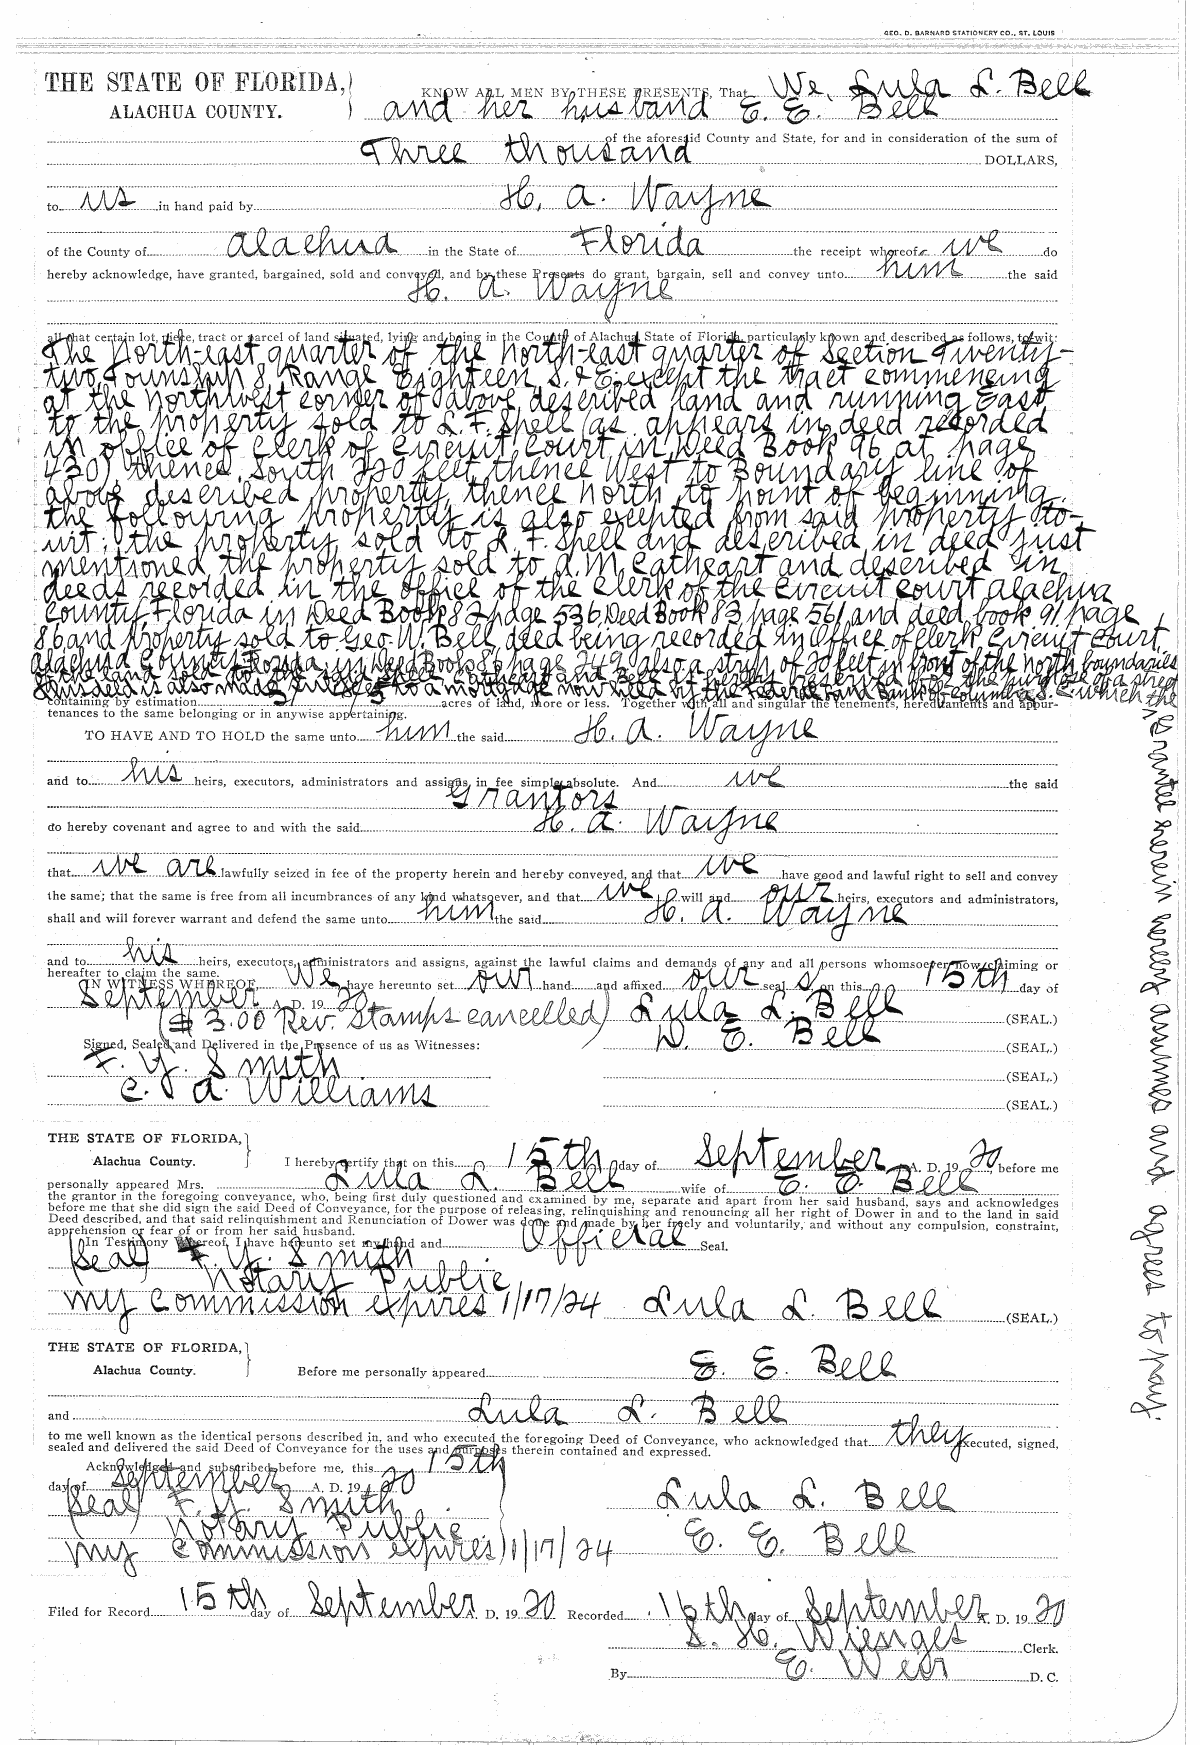 GEO. D. BARNARD STATIONERY CO., ST. LOUIS
THE STATE OF FLORIDA,
ALACHUA COUNTY.
KNOW ALL MEN BY THESE PRESENTS, That We, Lula L. Bell
and her husband E. E. Bell
of the aforesaid County and State, for and in consideration of the sum of
Three thousand DOLLARS,
to us in hand paid by H. A. Wayne
of the County of Alachua in the State of Florida the receipt whereof we do
hereby acknowledge, have granted, bargained, sold and conveyed, and by these Presents do grant, bargain, sell and convey unto him the said
H. A. Wayne
all that certain lot, piece, tract or parcel of land situated, lying and being in the County of Alachua, State of Florida, particularly known and described as follows, to-wit:
The North-east quarter of the north-east quarter of Section Twenty-
two Township 8, Range Eighteen, S. & E. except the tract commencing
at the northwest corner of above described land and running East
to the property sold to L. F. Shell (as appears in deed recorded
in office of Clerk of Circuit Court in Deed Book 96 at page
430) thence South 220 feet, thence West to Boundary line of
above described property, thence north to point of beginning.
the following property is also excepted from said property to-
wit: the property sold to L. F. Shell and described in deed just
mentioned the property sold to A. M. Cathcart and described in
deeds recorded in the office of the Clerk of the Circuit court Alachua
County, Florida in Deed Book 82 page 536, Deed Book 83 page 561 and deed book 91 page
86 and property sold to Geo. W. Bell, deed being recorded in Office of Clerk Circuit Court,
Alachua County, Florida, in Deed Book 86 page 249 also a strip of 20 feet in front of the north boundaries
of the land sold to the said Shell Cathcart and Bell is hereby reserved for the purpose of a street
This deed is also made subject to a mortgage now held by the Federal Land Bank of Columbia S. C. which the
containing by estimation acres of land, more or less. Together with all and singular the tenements, hereditaments and appur-
tenances to the same belonging or in anywise appertaining.
grantee herein hereby assumes and agrees to pay.
TO HAVE AND TO HOLD the same unto him the said H. A. Wayne
and to his heirs, executors, administrators and assigns, in fee simple absolute. And we the said
Grantors
do hereby covenant and agree to and with the said H. A. Wayne
that we are lawfully seized in fee of the property herein and hereby conveyed, and that we have good and lawful right to sell and convey
the same; that the same is free from all incumbrances of any kind whatsoever, and that we will and our heirs, executors and administrators,
shall and will forever warrant and defend the same unto him the said H. A. Wayne
and to his heirs, executors, administrators and assigns, against the lawful claims and demands of any and all persons whomsoever now claiming or
hereafter to claim the same.
IN WITNESS WHEREOF, We have hereunto set our hand and affixed our seal s on this 15th day of
September A. D. 1920
($3.00 Rev. Stamps cancelled) Lula L. Bell (SEAL.)
Signed, Sealed and Delivered in the Presence of us as Witnesses: E. Bell (SEAL.)
F. Y. Smith (SEAL.)
C. A. Williams (SEAL.)
THE STATE OF FLORIDA,
Alachua County.
I hereby certify that on this 15th day of September A. D. 1920 before me
personally appeared Mrs. Lula L. Bell wife of E. E. Bell
the grantor in the foregoing conveyance, who, being first duly questioned and examined by me, separate and apart from her said husband, says and acknowledges
before me that she did sign the said Deed of Conveyance, for the purpose of releasing, relinquishing and renouncing all her right of Dower in and to the land in said
Deed described, and that said relinquishment and Renunciation of Dower was done and made by her freely and voluntarily, and without any compulsion, constraint,
apprehension or fear of or from her said husband.
In Testimony Whereof, I have hereunto set my hand and Official Seal.
(Seal) F. Y. Smith
Notary Public
My Commission expires 1/17/24 Lula L. Bell (SEAL.)
THE STATE OF FLORIDA,
Alachua County.
Before me personally appeared E. E. Bell
and Lula L. Bell
to me well known as the identical persons described in, and who executed the foregoing Deed of Conveyance, who acknowledged that they executed, signed,
sealed and delivered the said Deed of Conveyance for the uses and purposes therein contained and expressed.
Acknowledged and subscribed before me, this 15th
day of September A. D. 1920
(Seal) F. Y. Smith Lula L. Bell
Notary Public
My Commission expires 1/17/24 E. E. Bell
Filed for Record 15th day of September A. D. 1920 Recorded 16th day of September A. D. 1920
S. H. Wienges Clerk.
By E. Weir D. C.